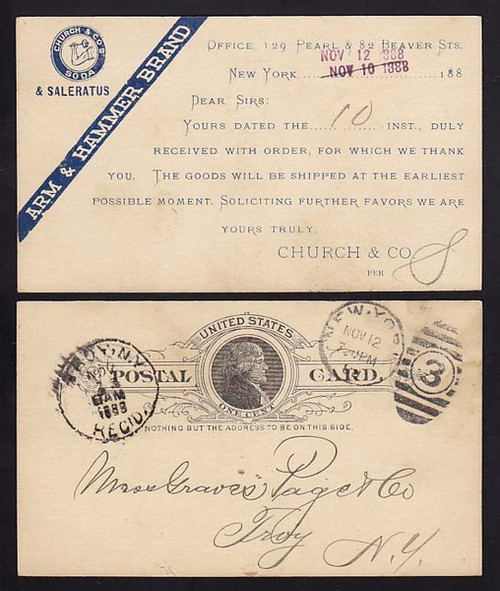 CHURCH & CO'S
SODA
& SALERATUS
ARM & HAMMER BRAND
OFFICE, 129 PEARL & 82 BEAVER STS.
NOV 12 1888
NEW YORK NOV 10 1888 188
DEAR SIRS:
YOURS DATED THE 10 INST., DULY
RECEIVED WITH ORDER, FOR WHICH WE THANK
YOU. THE GOODS WILL BE SHIPPED AT THE EARLIEST
POSSIBLE MOMENT. SOLICITING FURTHER FAVORS WE ARE
YOURS TRULY,
CHURCH & CO
PER
UNITED STATES
POSTAL CARD.
ONE CENT
NOTHING BUT THE ADDRESS TO BE ON THIS SIDE.
NEW YORK
NOV 12
PM
3
TROY N.Y.
NOV
8 AM
1888
REC'D.
Mess Graves Page & Co
Troy
N.Y.